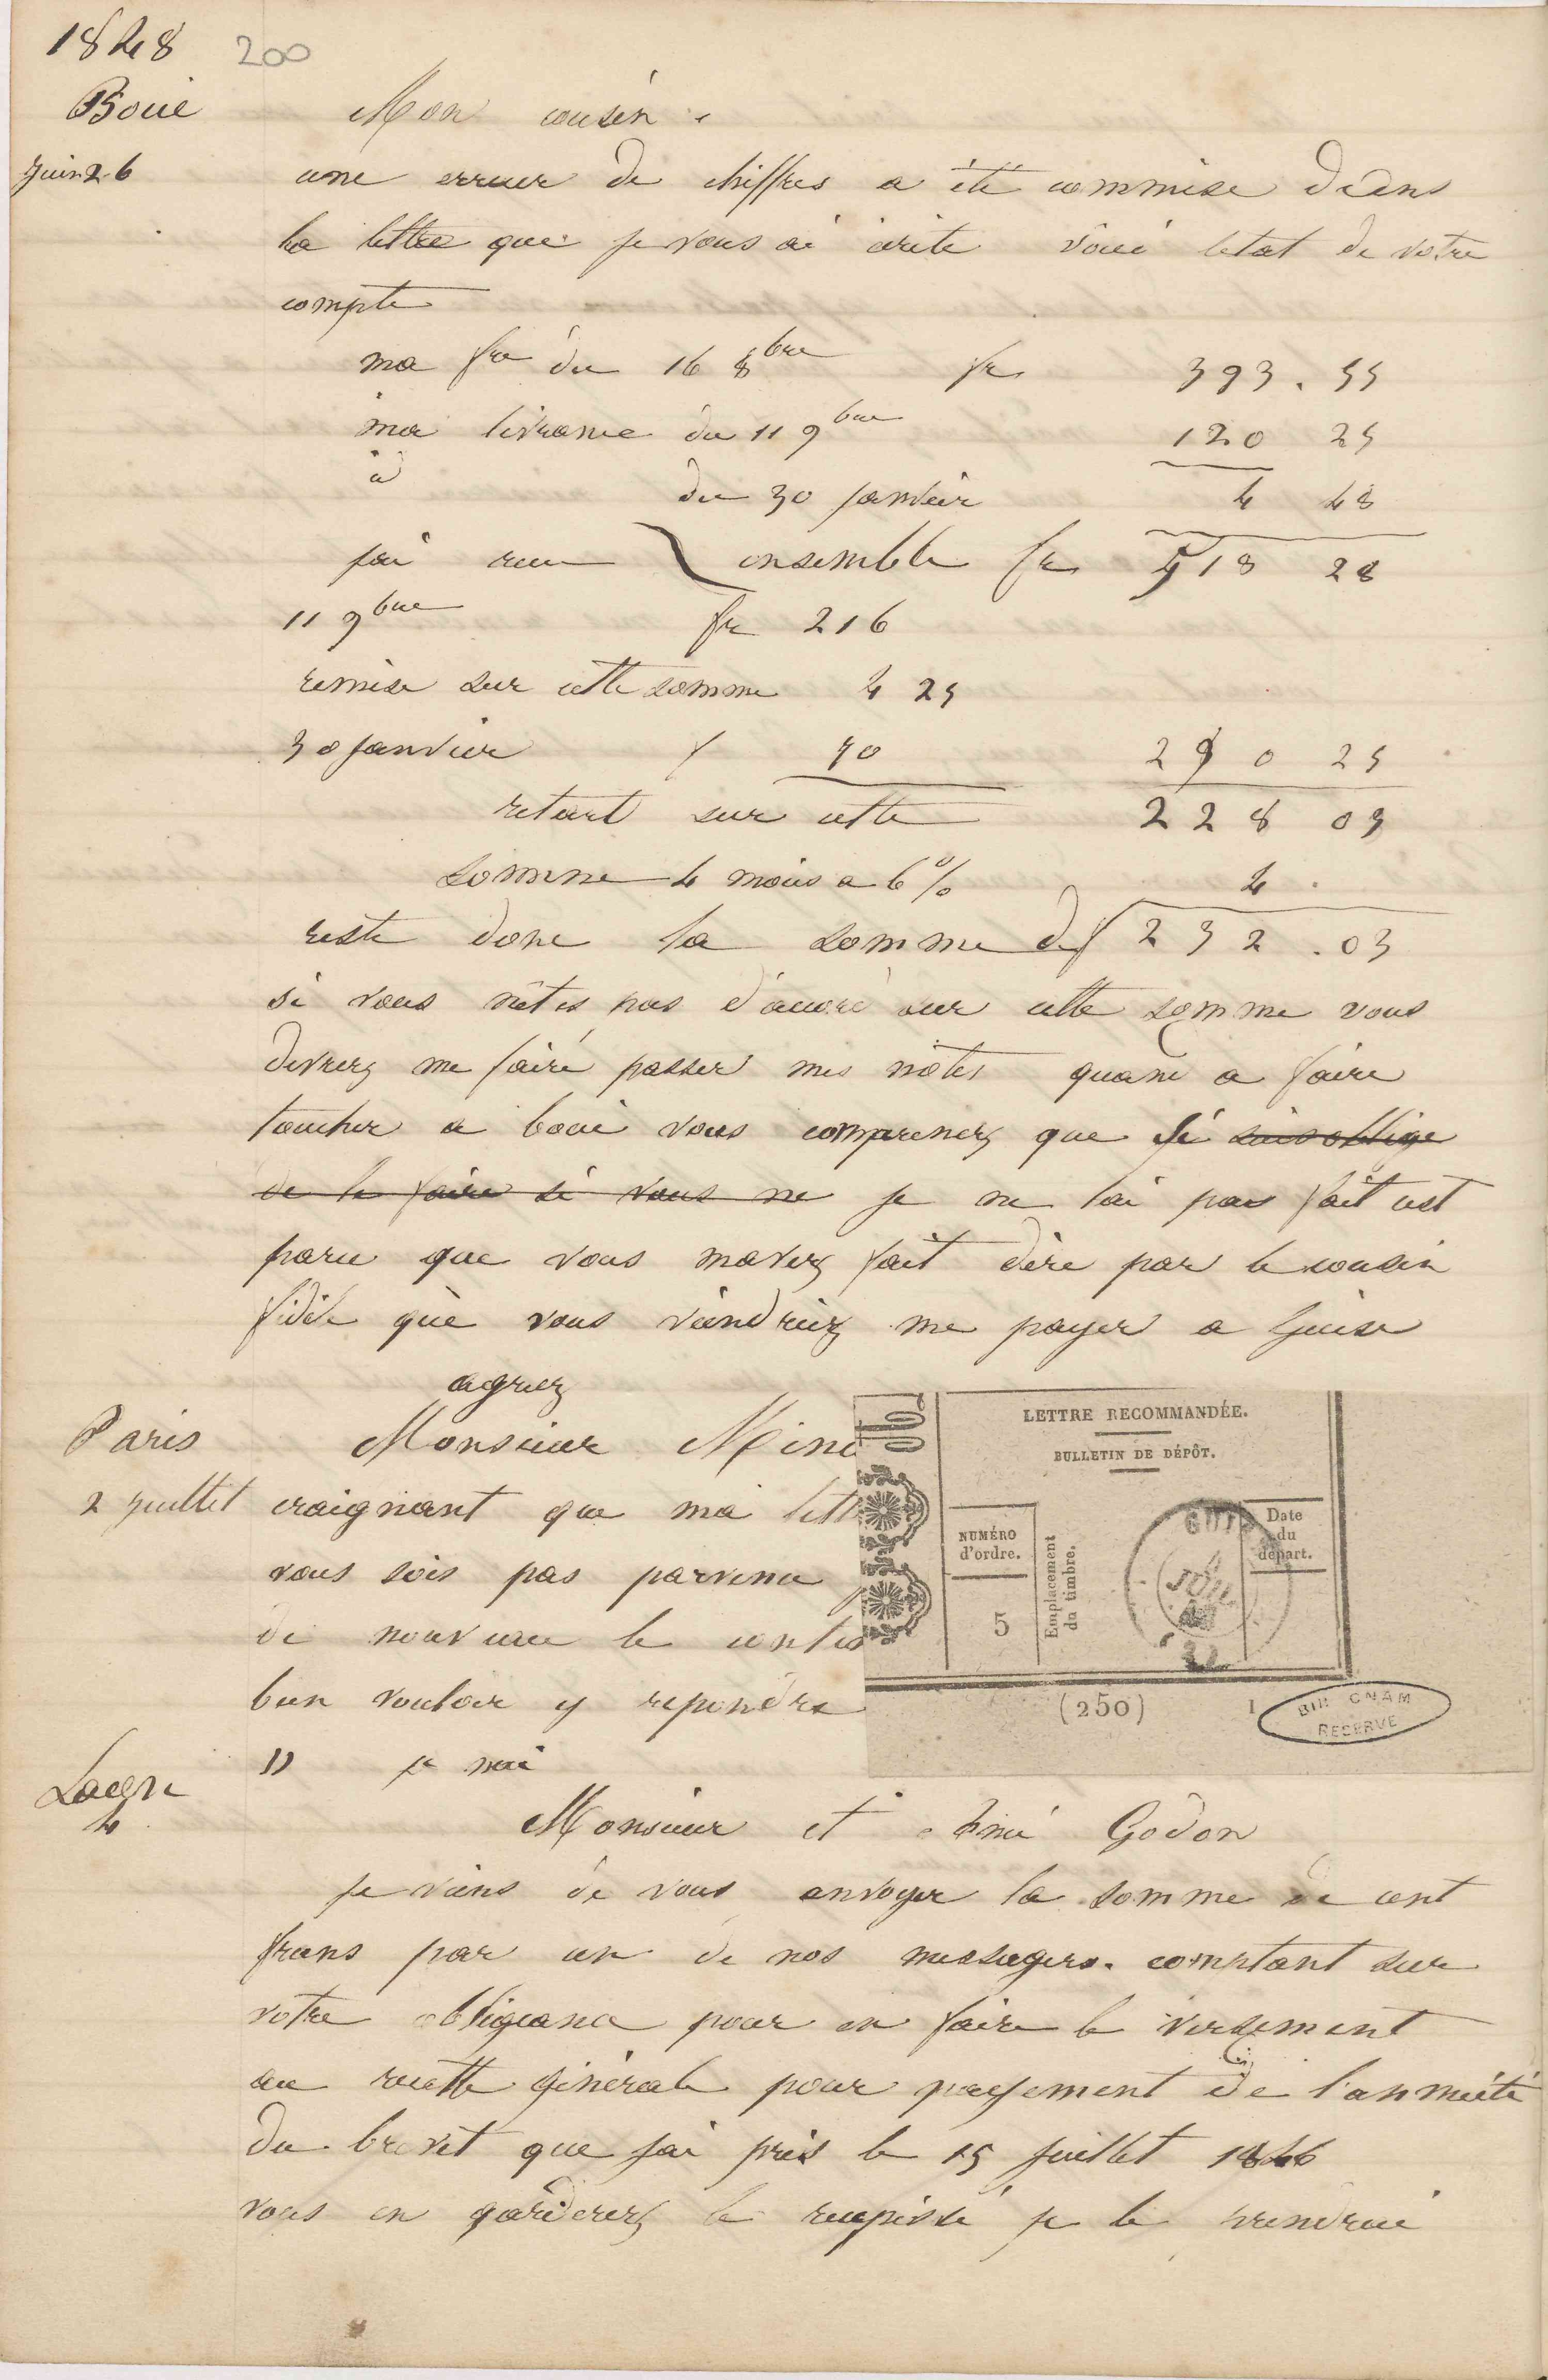 1848 200
Boué
Juin 26
Mon cousin.
une erreur de chiffres a été commise dans
la lettre que je vous ai écrite voici letat de votre
compte
ma fre du 16 8bre fr 393.55
ma livrance du 11 9bre 120 25
id du 30 janvier 4 48
jai recu ensemble fr 518 28
11 9bre fr 216
remise sur cette somme 4 25
30 janvier f 70 290 25
retart sur cette 228 03
somme 4 mois a 6% 4.
reste donc la somme de f 232.03
si vous nêtes pas d'acord sur cette somme vous
devrez me faire passer mes notes quand a faire
toucher a boué vous comprenez que si suis obligé
de le faire si vous ne je ne lai pas fait cest
parce que vous mavez fait dire par le cousin
fidèle que vous viendriez me payer a Guise
agréez
Paris
Monsieur Mine
2 juillet
craignant que ma lett
vous sois pas parvenu
de nouveau le conte
bien vouloir y repondre
" je nai
LETTRE RECOMMANDÉE.
BULLETIN DE DÉPÔT.
NUMÉRO
d'ordre.
5
Emplacement
du timbre.
GUI
4
JUIL.
Date
du
départ.
(250) 1
BIB CNAM
RESERVE
Laon
4
Monsieur et ami Godon
je viens de vous envoyer la somme de cent
frans par un de nos messagers. comptant sur
votre obligeance pour en faire le versement
au recette générale pour payement de l'annuité
du brevet que jai pris le 15 juillet 1846
vous en garderez le recepissé je le prendrai